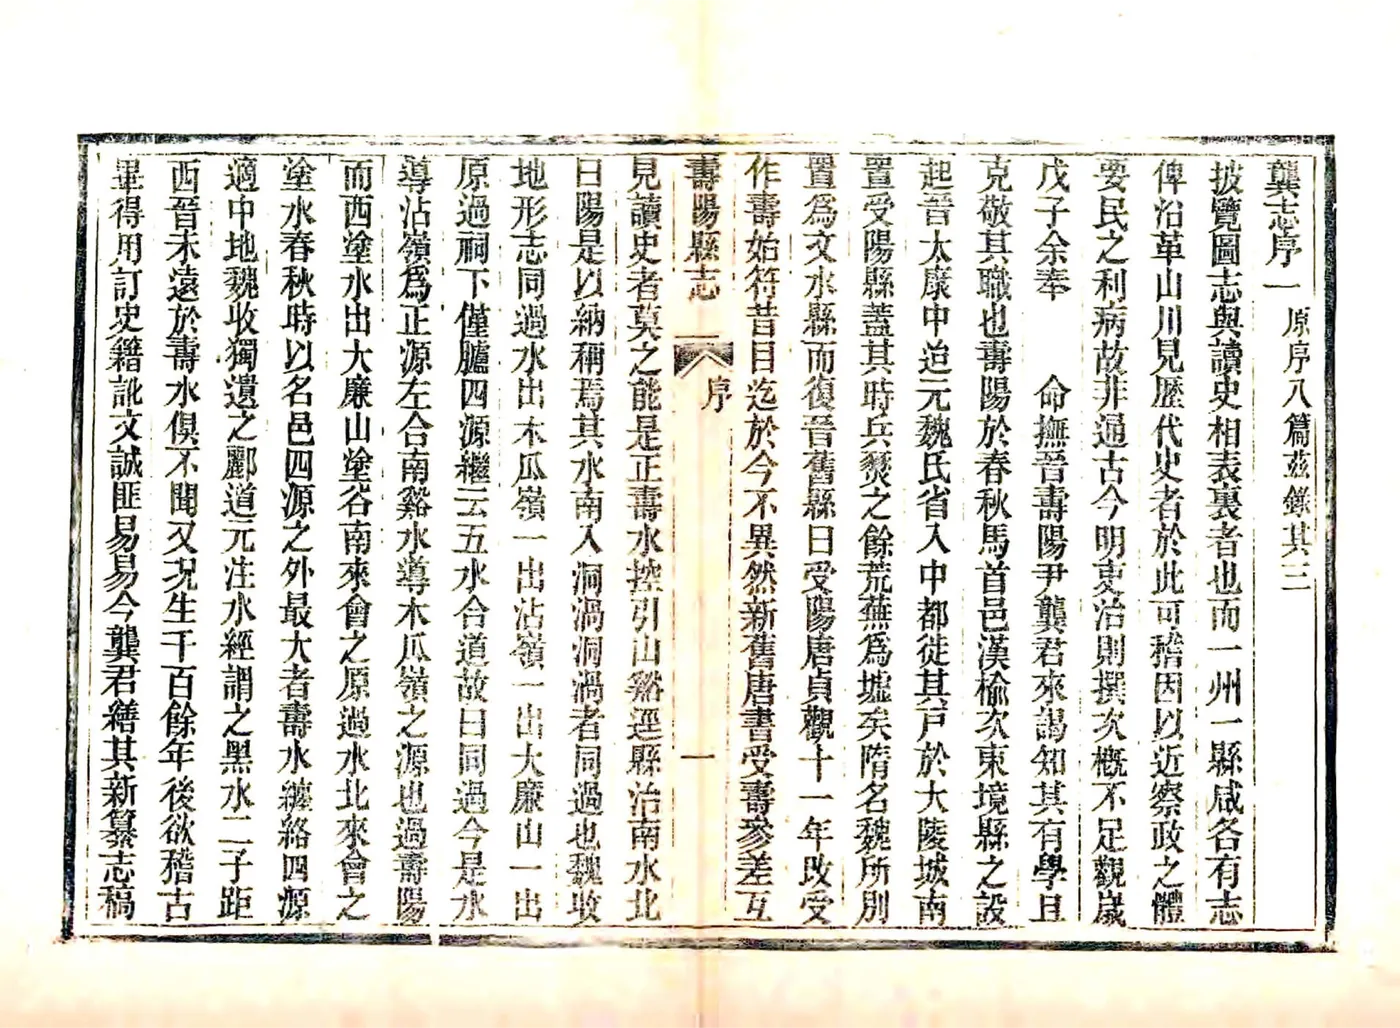 龔志序一　原序八篇茲錄其三
披覽圖志與讀史相表裏者也而一州一縣咸各有志
俾沿革山川見歷代史者於此可稽因以近察政之體
要民之利病故非通古今明吏治則撰次概不足觀歲
戊子余奉　命撫晉壽陽尹龔君來謁知其有學且
克敬其職也壽陽於春秋馬首邑漢榆次東境縣之設
起晉太康中迨元魏氏省入中都徙其戸於大陵城南
置受陽縣蓋其時兵燹之餘荒蕪為墟矣隋名魏所別
置爲文水縣而復晉舊縣曰受陽唐貞觀十一年改受
作壽始符昔目迄於今不異然新舊唐書受壽參差互
壽陽縣志　序　一
見讀史者莫之能是正壽水控引山谿逕縣治南水北
曰陽是以納稱焉其水南入洞渦洞渦者同過也魏收
地形志同過水出木瓜嶺一出沾嶺一出大廉山一出
原過祠下僅臚四源繼云五水合道故曰同過今是水
導沾嶺爲正源左合南谿水導木瓜嶺之源也過壽陽
而西塗水出大廉山塗谷南來會之原過水北來會之
塗水春秋時以名邑四源之外最大者壽水纏絡四源
適中地魏收獨遺之酈道元注水經謂之黑水二子距
西晉未遠於壽水俱不聞又况生千百餘年後欲稽古
畢得用訂史籍訛文誠匪易易今龔君繕其新纂志稿